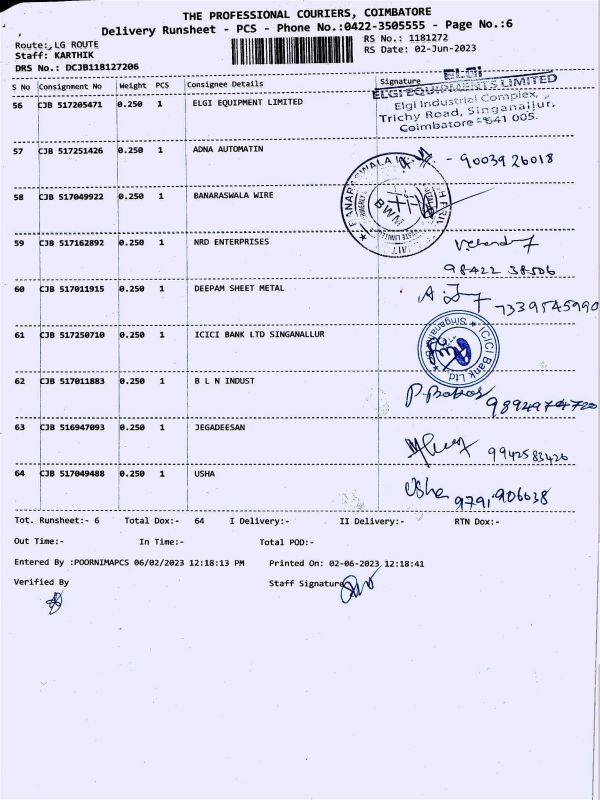 THE PROFESSIONAL COURIERS, COIMBATORE
Delivery Runsheet - PCS - Phone No.:0422-3505555 - Page No.:6
Route:, LG ROUTE
Staff: KARTHIK
DRS No.: DCJB118127206
RS No.: 1181272
RS Date: 02-Jun-2023
S No Consignment No Weight PCS Consignee Details Signature
56 CJB 517205471 0.250 1 ELGI EQUIPMENT LIMITED
ELGI
ELGI EQUIPMENTS LIMITED
Elgi Industrial Complex,
Trichy Road, Singanallur,
Coimbatore - 641 005.
57 CJB 517251426 0.250 1 ADNA AUTOMATIN - 9003926018
58 CJB 517049922 0.250 1 BANARASWALA WIRE
BWM
59 CJB 517162892 0.250 1 NRD ENTERPRISES
98422 38506
60 CJB 517011915 0.250 1 DEEPAM SHEET METAL 7339545990
61 CJB 517250710 0.250 1 ICICI BANK LTD SINGANALLUR
ICICI Bank Ltd
62 CJB 517011883 0.250 1 B L N INDUST
9894974720
63 CJB 516947093 0.250 1 JEGADEESAN 9942583426
64 CJB 517049488 0.250 1 USHA Usha 9791906038
Tot. Runsheet:- 6 Total Dox:- 64 I Delivery:- II Delivery:- RTN Dox:-
Out Time:- In Time:- Total POD:-
Entered By :POORNIMAPCS 06/02/2023 12:18:13 PM Printed On: 02-06-2023 12:18:41
Verified By Staff Signature